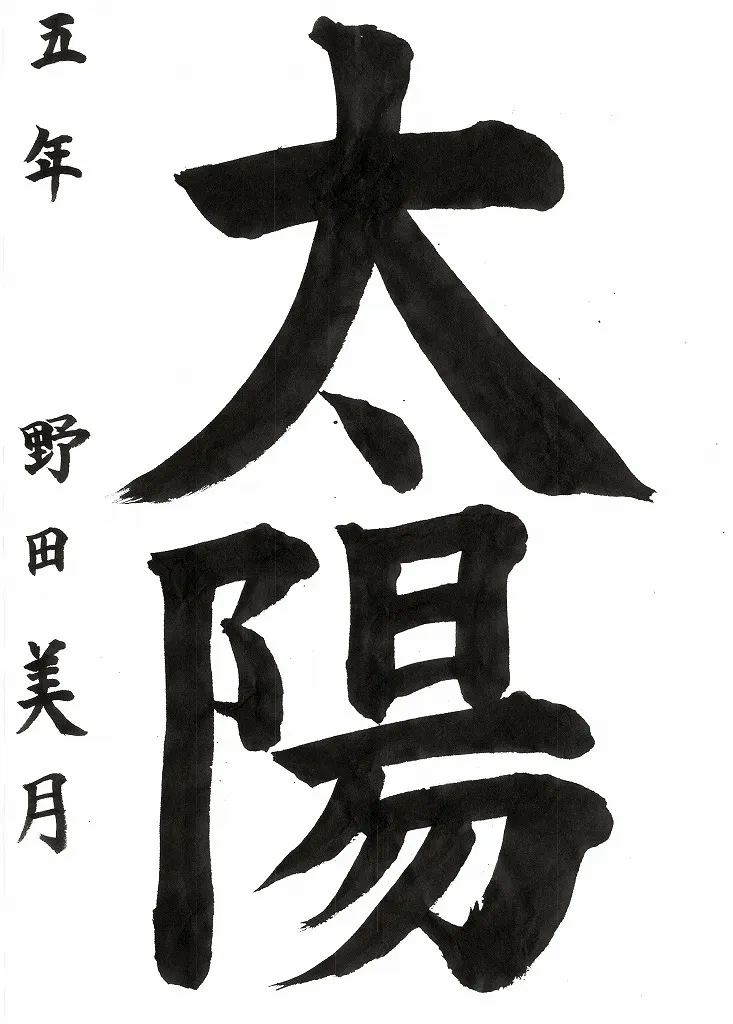 太陽
五年 野田美月